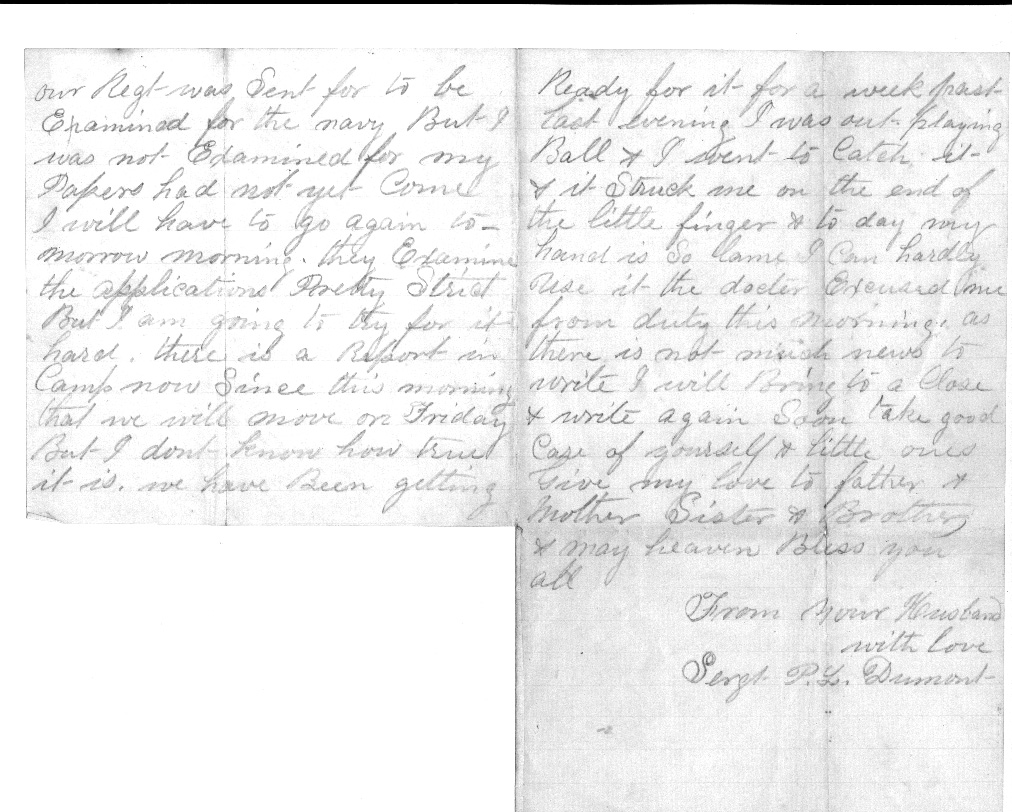 our Regt was Sent for to be
Examined for the navy But I
was not Examined for my
Papers had not yet Come
I will have to go again to-
morrow morning. they Examine
the applications Pretty Strict
But I am going to try for it
hard. there is a Report in
Camp now Since this morning
that we will move on Friday
But I dont know how true
it is. we have Been getting
Ready for it for a week past
Last evening I was out playing
Ball & I went to Catch it
& it Struck me on the end of
the little finger & to day my
hand is So lame I Can hardly
Use it the docter Excused me
from duty this morning. as
there is not much news to
write I will Bring to a Close
& write again Soon take good
Care of yourself & little ones
Give my love to father &
Mother Sister & Brother
& may heaven Bless you
all
From Your Husband
with love
Sergt P.L. Dumont